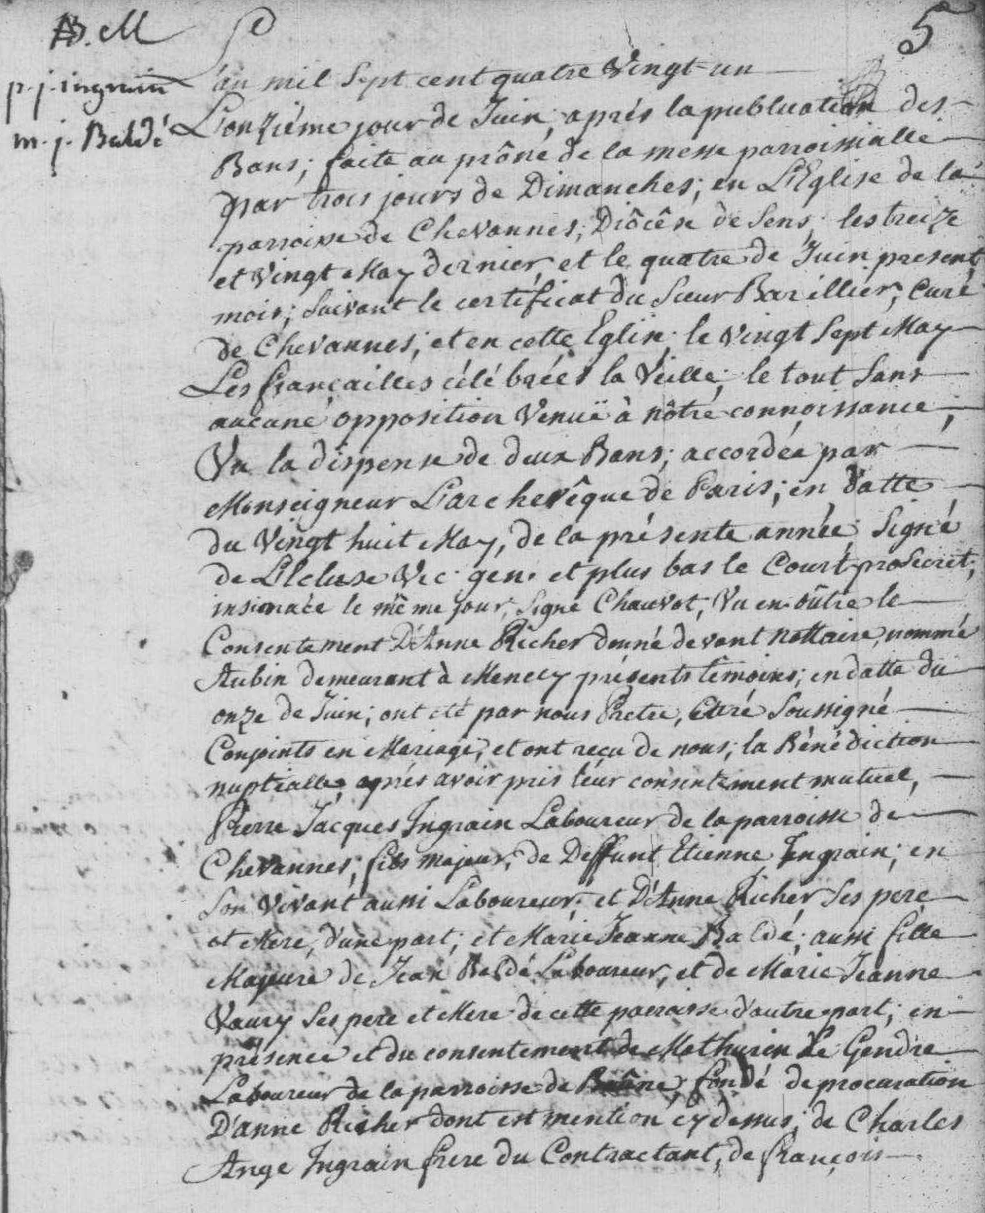 B. M
5
p. j. ingrain
m. j. Baldé
L'an mil Sept cent quatre Vingt un
L'onziéme jour de Juin, aprés la publication des
Bans, faite au prône de la messe parroissialle
par trois jours de Dimanches; en L'Eglise de la
parroisse de Chevannes, Diôcêse de Sens, les treize
et Vingt May dernier, et le quatre de Juin present
mois; Suivant le certificat du Sieur Barillier, Curé
de Chevannes; et en cette Eglise le Vingt Sept May
Les fiançailles célébrées la Veille, le tout Sans
aucune opposition Venuë à nôtre connoissance;
Vu la dispense de deux Bans, accordée par
Monseigneur L'archevêque de Paris; en datte
du Vingt huit May, de la présente année Signé
de L'Ecluse Vic. gen. et plus bas le Court proSecret,
insinuée le même jour, Signé Chauvot, Vu en oûtre le
Consentement D'Anne Richer donné devant nottaire, nommé
Aubin demeurant à Menecy présents têmoins; en datte du
onze de Juin; ont été par nous Pretre, Curé Soussigné
Conjoints en Mariage, et ont reçu de nous; la Bénédiction
nuptialle, aprés avoir pris leur consentement mutuel,
Pierre Jacques Ingrain Laboureur de la parroisse de
Chevannes; fils majeur, de Deffunt Etienne Ingrain; en
Son Vivant aussi Laboureur et D'Anne Richer Ses pere
et Mere, d'une part; et Marie Jeanne Baldé; aussi fille
Majeure de Jean Baldé Laboureur, et de Marie Jeanne
Vaury Ses pere et Mere de cette parroisse d'autre part; en
présence et du consentement de Mathurin Le Gendre
Laboureur de la parroisse de fondé de procuration
D'anne Richer dont est mention cy dessus, de Charles
Ange Ingrain frere du Contractant, de François